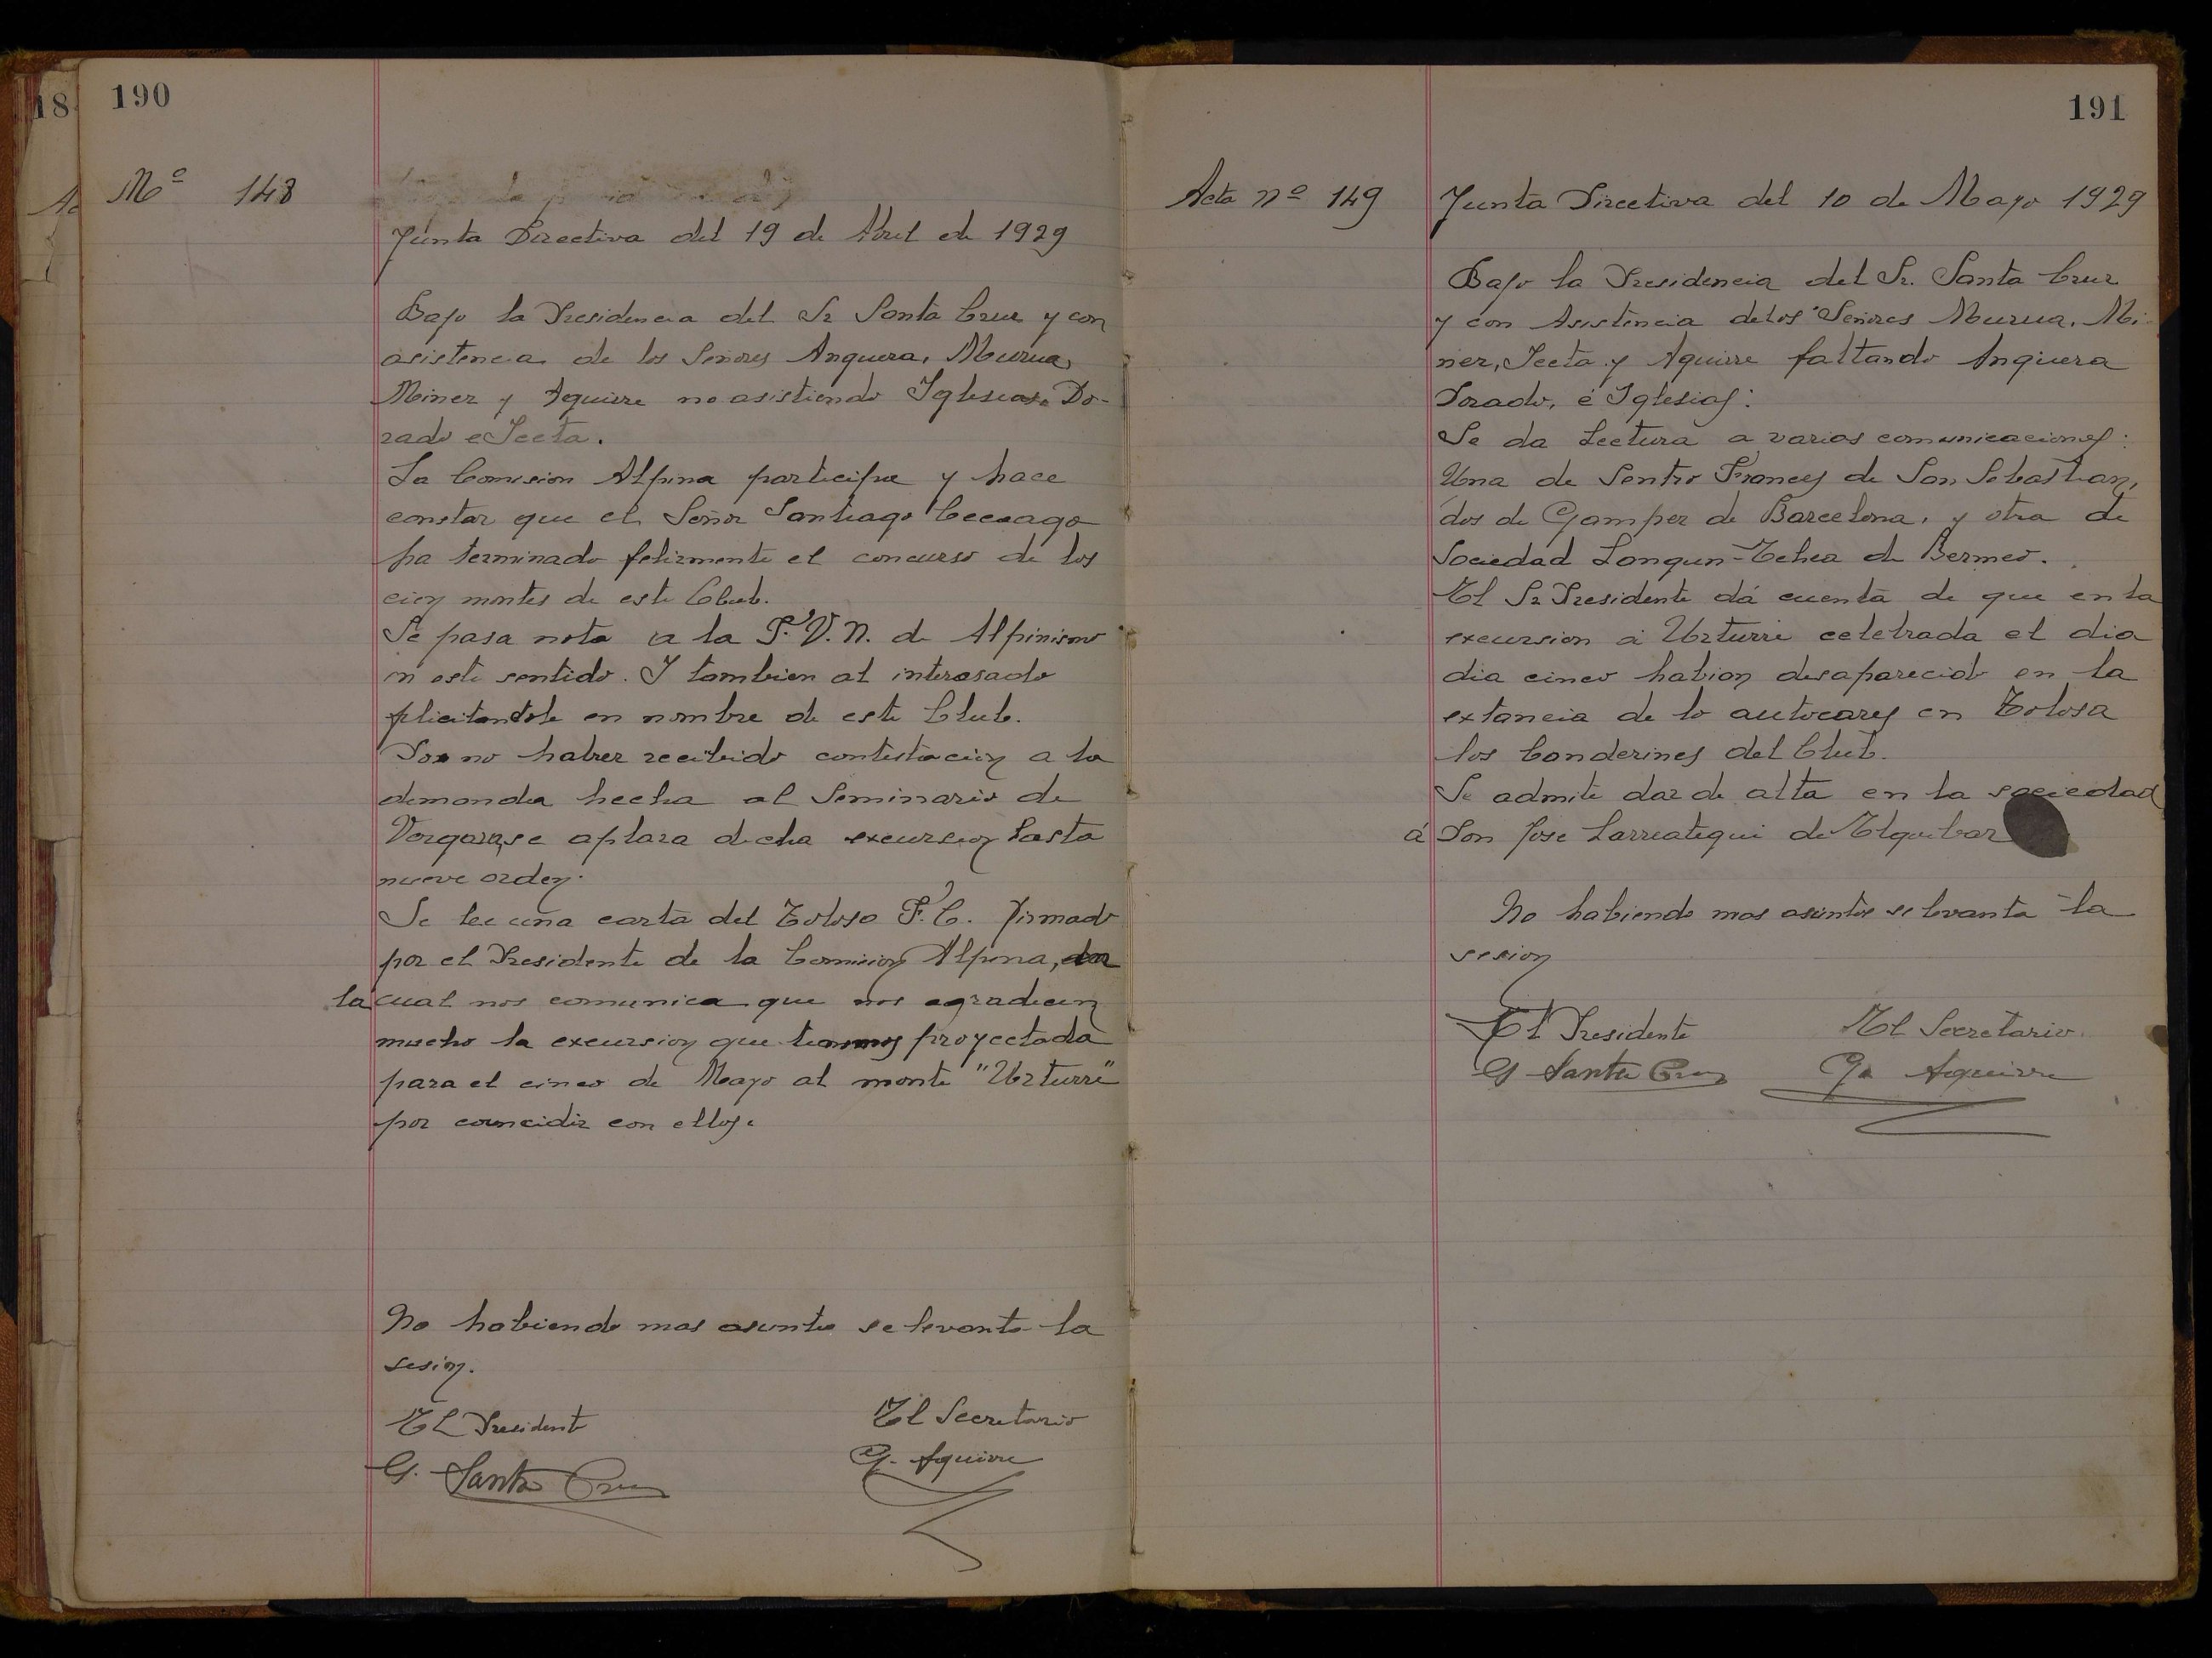 190
Nº 148
Junta Directiva del 19 de Abril de 1929
Bajo la Presidencia del Sr Santa Cruz y con
asistencia de los Señores Anguera, Murua,
Miner y Aguirre no asistiendo Iglesias Do-
rado e Iceta.
La Comision Alpina participa y hace
constar que el Señor Santiago
ha terminado felizmente el concurso de los
cien montes de este Club.
Se pasa nota a la F. V. N. de Alpinismo
en este sentido. I tambien al interesado
felicitandole en nombre de este Club.
Por no haber recibido contestación a la
demanda hecha al Seminario de
Vergara, se aplaza dicha excursion hasta
nueve orden.
Se lee una carta del Tolosa F. C. firmado
por el Presidente de la Comision Alpina,
la cual nos comunica que nos agradecen
mucho la excursion que tenemos proyectada
para el cinco de Mayo al monte "Uzturre"
por coincidir con ellos.
No habiendo mas asuntos se levanta la
sesion.
El Presidente El Secretario
G. Santa Cruz G. Aguirre
191
Acta nº 149
Junta Directiva del 10 de Mayo 1929
Bajo la Presidencia del Sr. Santa Cruz
y con Asistencia de los Señores Murua, Mi-
ner, Iceta y Aguirre faltando Anguera
Dorado, é Iglesias:
Se da Lectura a varias comunicaciones:
Una de Sentro Frances de San Sebastian,
dos de Gamper de Barcelona, y otra de
Sociedad Langun-Echea de Bermeo.
El Sr Presidente dá cuenta de que en la
excursion á Uzturri celebrada el dia
dia cinco habian desaparecido en la
extancia de lo autocares en Tolosa
los banderines del Club.
Se admite dar de alta en la sociedad
á Don Jose Larreategui de Elgueibar
No habiendo mas asuntos se levanta la
sesion
El Presidente El Secretario
G Santa Cruz Aguirre